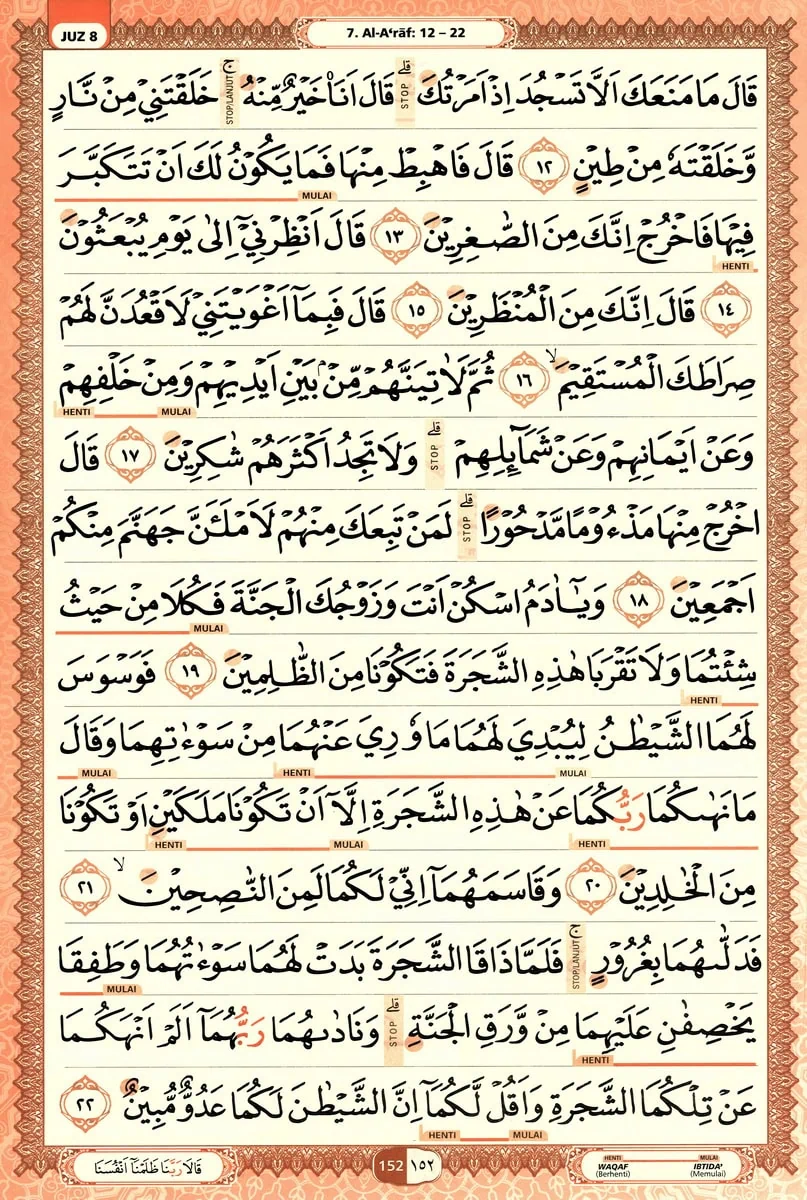 JUZ 8
7. Al-A‘rāf: 12 – 22
قَالَ مَا مَنَعَكَ اَلَّا تَسْجُدَ اِذْ اَمَرْتُكَ ۗ STOP قَالَ اَنَا۠ خَيْرٌ مِّنْهُ ۚ STOP/LANJUT خَلَقْتَنِيْ مِنْ نَّارٍ
وَّخَلَقْتَهٗ مِنْ طِيْنٍ ١٢ قَالَ فَاهْبِطْ مِنْهَا فَمَا يَكُوْنُ لَكَ اَنْ تَتَكَبَّرَ
MULAI
فِيْهَا فَاخْرُجْ اِنَّكَ مِنَ الصّٰغِرِيْنَ ١٣ قَالَ اَنْظِرْنِيْٓ اِلٰى يَوْمِ يُبْعَثُوْنَ
HENTI
١٤ قَالَ اِنَّكَ مِنَ الْمُنْظَرِيْنَ ١٥ قَالَ فَبِمَآ اَغْوَيْتَنِيْ لَاَقْعُدَنَّ لَهُمْ
صِرَاطَكَ الْمُسْتَقِيْمَۙ ١٦ ثُمَّ لَاٰتِيَنَّهُمْ مِّنْۢ بَيْنِ اَيْدِيْهِمْ وَمِنْ خَلْفِهِمْ
MULAI HENTI
وَعَنْ اَيْمَانِهِمْ وَعَنْ شَمَاۤىِٕلِهِمْ ۗ STOP وَلَا تَجِدُ اَكْثَرَهُمْ شٰكِرِيْنَ ١٧ قَالَ
اخْرُجْ مِنْهَا مَذْءُوْمًا مَّدْحُوْرًا ۗ STOP لَمَنْ تَبِعَكَ مِنْهُمْ لَاَمْلَـَٔنَّ جَهَنَّمَ مِنْكُمْ
اَجْمَعِيْنَ ١٨ وَيٰٓاٰدَمُ اسْكُنْ اَنْتَ وَزَوْجُكَ الْجَنَّةَ فَكُلَا مِنْ حَيْثُ
MULAI
شِئْتُمَا وَلَا تَقْرَبَا هٰذِهِ الشَّجَرَةَ فَتَكُوْنَا مِنَ الظّٰلِمِيْنَ ١٩ فَوَسْوَسَ
HENTI
لَهُمَا الشَّيْطٰنُ لِيُبْدِيَ لَهُمَا مَا وٗرِيَ عَنْهُمَا مِنْ سَوْءٰتِهِمَا وَقَالَ
MULAI HENTI MULAI
مَا نَهٰىكُمَا رَبُّكُمَا عَنْ هٰذِهِ الشَّجَرَةِ اِلَّآ اَنْ تَكُوْنَا مَلَكَيْنِ اَوْ تَكُوْنَا
HENTI MULAI HENTI
مِنَ الْخٰلِدِيْنَ ٢٠ وَقَاسَمَهُمَآ اِنِّيْ لَكُمَا لَمِنَ النّٰصِحِيْنَۙ ٢١
فَدَلّٰىهُمَا بِغُرُوْرٍ ۚ STOP/LANJUT فَلَمَّا ذَاقَا الشَّجَرَةَ بَدَتْ لَهُمَا سَوْءٰتُهُمَا وَطَفِقَا
MULAI
يَخْصِفٰنِ عَلَيْهِمَا مِنْ وَّرَقِ الْجَنَّةِ ۗ STOP وَنَادٰىهُمَا رَبُّهُمَآ اَلَمْ اَنْهَكُمَا
HENTI
عَنْ تِلْكُمَا الشَّجَرَةِ وَاَقُلْ لَّكُمَآ اِنَّ الشَّيْطٰنَ لَكُمَا عَدُوٌّ مُّبِيْنٌ ٢٢
MULAI HENTI
قَالَا رَبَّنَا ظَلَمْنَآ اَنْفُسَنَا
152 ١٥٢
HENTI WAQAF (Berhenti)
MULAI IBTIDA' (Memulai)